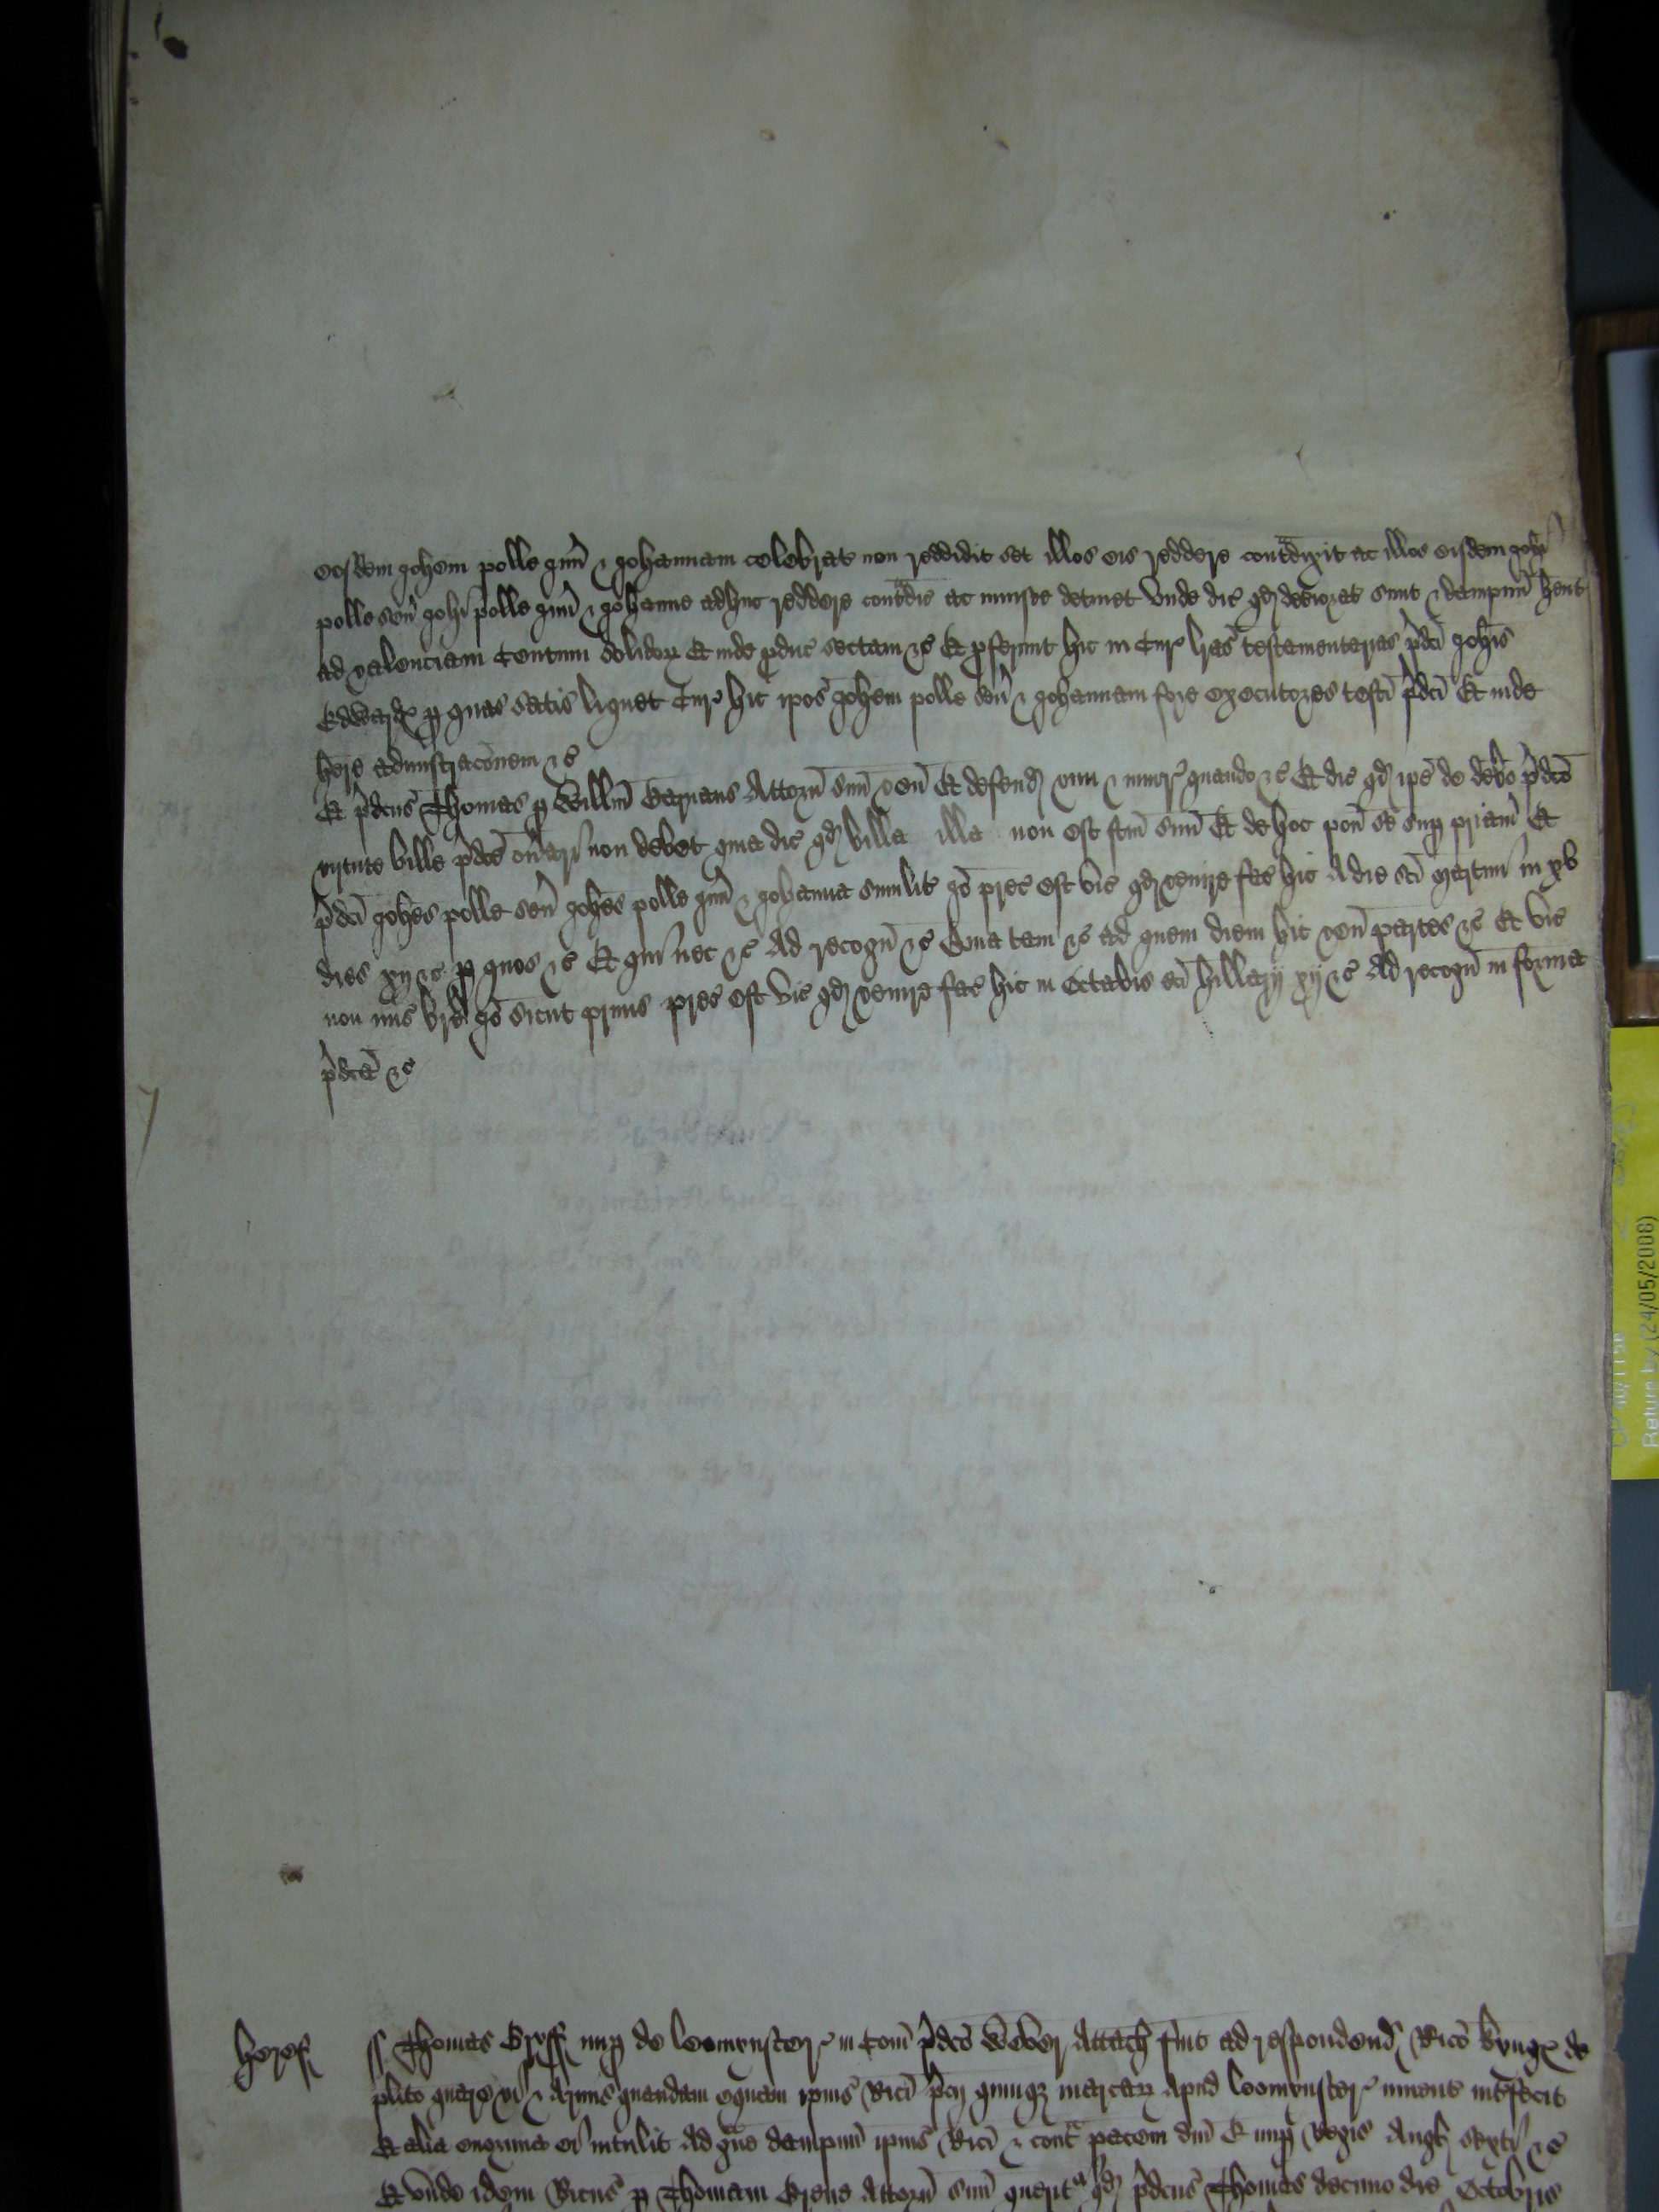 eosdem Johem Polle Juñ & Johannam celebrat̃ non reddidit set illos eis reddere contᵃdixit ac illos eisdem Johi
Polle Señ Johi Polle Juñ & Johanne adhuc reddere contᵃdic̃ ac iniuste detinet Unde dic̃ qđ deteriorati sunt & dampnũ hent
ad valenciam Centum solidoꝝ Et inde ꝓduc̃ sectam &c̃ Et ꝓferunt hic in Cur̃ lr̃as testamentarias p̃dc̃i Johis
Edwardꝭ ꝑ quas satis liquet Cur̃ hic ip̃os Johem Polle Señ & Johannam fore executores testi p̃dc̃i Et inde
here administracõnem &c̃
Et p̃dc̃us Thomas ꝑ Willm̃ attorñ suũ veñ Et defend̃ vim & iniur̃ quando &c̃ Et dic̃ qđ ip̃e de deb̃o p̃dc̃o
virtute bille p̃dc̃e oñari non debet quia dic̃ qđ billa illa non est fc̃m suũ Et de hoc poñ se suꝑ pr̃iam Et
p̃dc̃i Johes Polle Señ Johes Polle Juñ & Johanna similit̃ Iõ prec̃ est vic̃ qđ venire fac̃ hic A die Sc̃i Martini in xv
dies xij &c̃ ꝑ quos &c̃ Et qui nec &c̃ Ad recogñ &c̃ Quia tam &c̃ ad quem diem hic veñ partes &c̃ Et vic̃
non mis̃ br̃e Iõ sicut prius prec̃ est vic̃ qđ venire fac̃ hic in Octabis Sc̃i Hillarij xij &c̃ Ad recogñ in forma
p̃dc̃a &c̃
CP 40/1150
Return by (24/05/2008)
Heref̃ ss Thomas nuꝑ de Leomynster in Com̃ p̃dc̃o Attach fuit ad respondend̃ Ric̃o Kyngꝭ de
plito quare vi & armis quandam equam ip̃ius Ric̃i p̃cij quinqꝫ marcaꝝ apud Leomynster inuent̃ int̃fecit
Et alia enormia ei intulit Ad gũe dampnũ ip̃ius Ric̃i & contᵃ pacem dñi E nuꝑ Regis Angl̃ sexti &c̃
Et unde idem Ric̃us ꝑ Thomam attorñ suũ querit̃ qđ p̃dc̃us Thomas decimo die Octobris